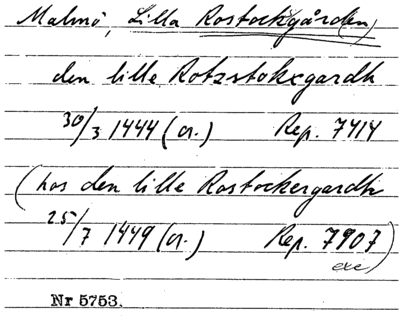 Malmö, Lilla Rostockgården
den lille Rotzstokxgardh
30/3 1444 (or.) Rep. 7414
(hos den lille Rostockergardh
25/7 1449 (or.) Rep. 7907)
exc
Nr 5753.